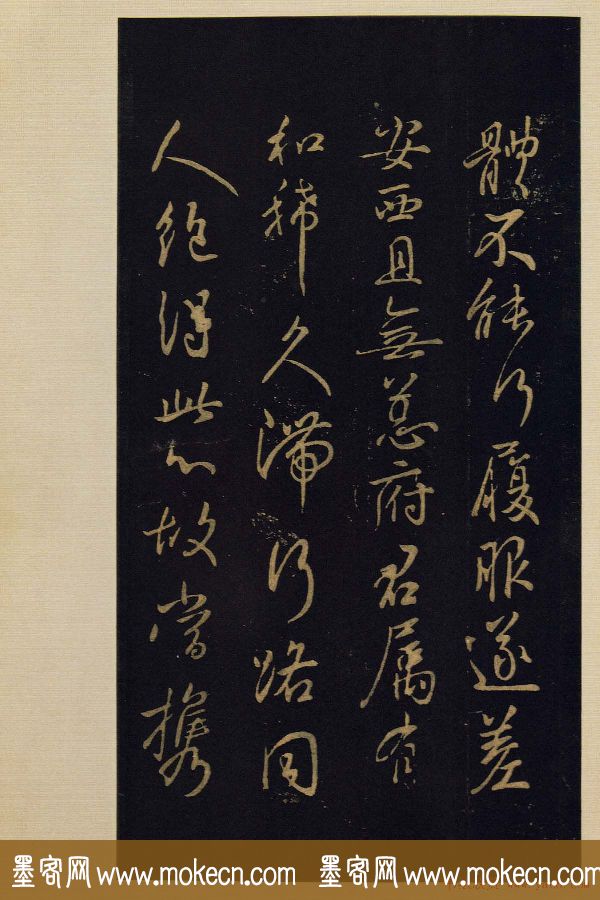 體不能行履眼遂差
安西且無恙府君属有
和稀久滯行路同
人絶得此心故當攜
墨客网 www.mokecn.com 墨客网 www.mokecn.com